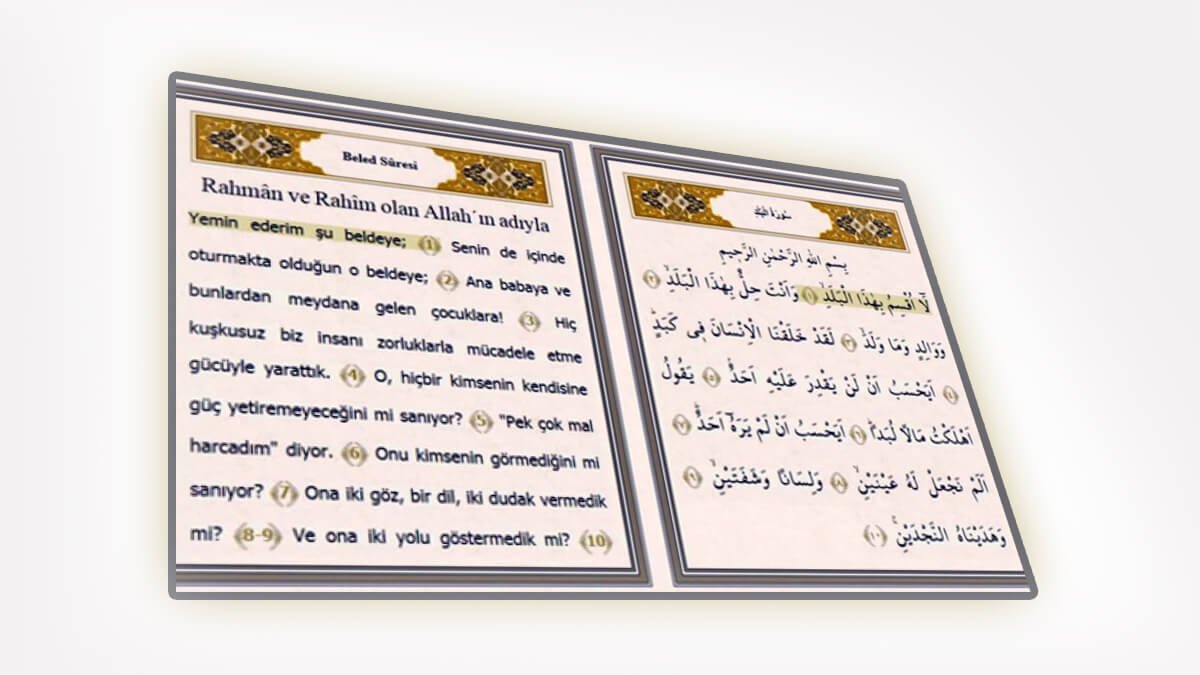 Beled Sûresi
Rahmân ve Rahîm olan Allah´ın adıyla
Yemin ederim şu beldeye; ﴾1﴿ Senin de içinde
oturmakta olduğun o beldeye; ﴾2﴿ Ana babaya ve
bunlardan meydana gelen çocuklara! ﴾3﴿ Hiç
kuşkusuz biz insanı zorluklarla mücadele etme
gücüyle yarattık. ﴾4﴿ O, hiçbir kimsenin kendisine
güç yetiremeyeceğini mi sanıyor? ﴾5﴿ "Pek çok mal
harcadım" diyor. ﴾6﴿ Onu kimsenin görmediğini mi
sanıyor? ﴾7﴿ Ona iki göz, bir dil, iki dudak vermedik
mi? ﴾8-9﴿ Ve ona iki yolu göstermedik mi? ﴾10﴿
سُورَةُ الْبَلَدِ
بِسْمِ اللّٰهِ الرَّحْمٰنِ الرَّحٖيمِ
لَٓا اُقْسِمُ بِهٰذَا الْبَلَدِۙ ﴿١﴾ وَاَنْتَ حِلٌّ بِهٰذَا الْبَلَدِۙ ﴿٢﴾
وَوَالِدٍ وَمَا وَلَدَۙ ﴿٣﴾ لَقَدْ خَلَقْنَا الْاِنْسَانَ فٖى كَبَدٍؕ
﴿٤﴾ اَيَحْسَبُ اَنْ لَنْ يَقْدِرَ عَلَيْهِ اَحَدٌۘ ﴿٥﴾ يَقُولُ
اَهْلَكْتُ مَالًا لُبَدًاؕ ﴿٦﴾ اَيَحْسَبُ اَنْ لَمْ يَرَهُٓ اَحَدٌؕ ﴿٧﴾
اَلَمْ نَجْعَلْ لَهُ عَيْنَيْنِۙ ﴿٨﴾ وَلِسَانًا وَشَفَتَيْنِۙ ﴿٩﴾
وَهَدَيْنَاهُ النَّجْدَيْنِۚ ﴿١٠﴾